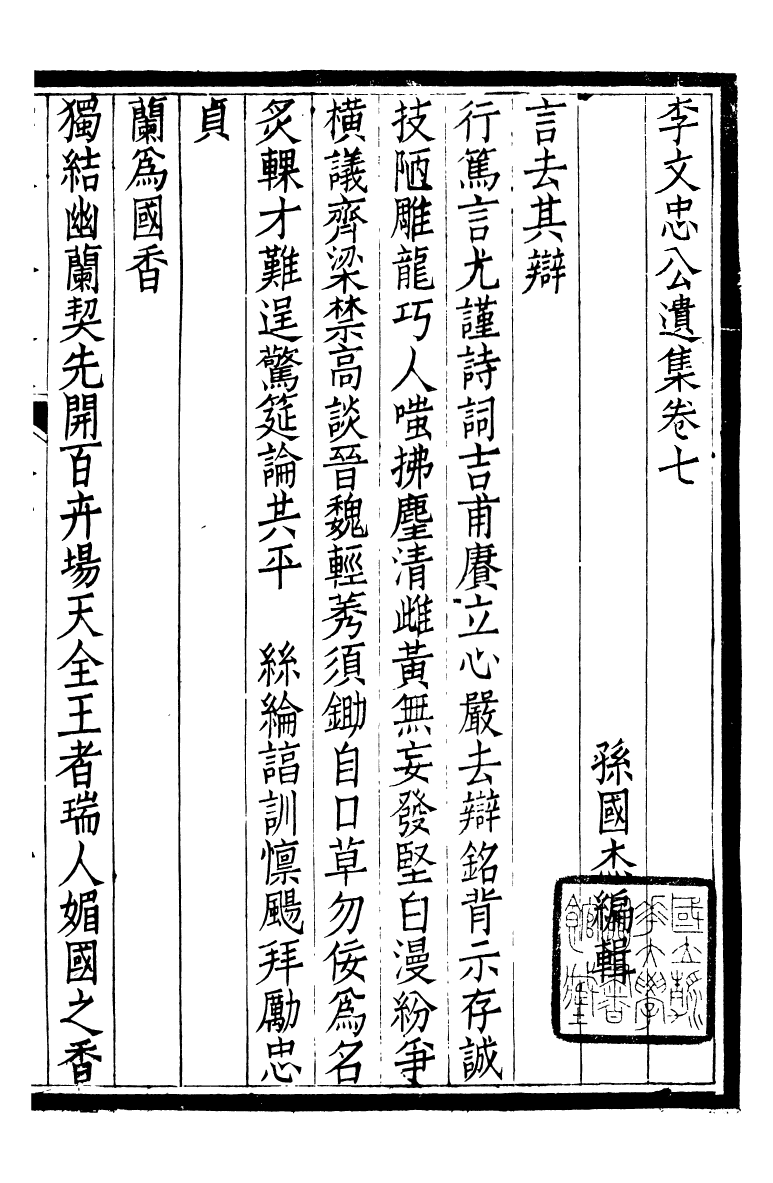 李文忠公遺集卷七
孫國杰編輯
言去其辯
行篤言尤謹詩詞吉甫賡立心嚴去辯銘背示存誠
技陋雕龍巧人嗤拂麈清雌黃無妄發堅白漫紛爭
橫議齊梁禁高談晉魏輕莠須鋤自口草勿佞為名
炙輠才難逞驚筵論共平　絲綸諮訓懍颺拜勵忠
貞
蘭為國香
獨結幽蘭契先開百卉場天全王者瑞人媚國之香